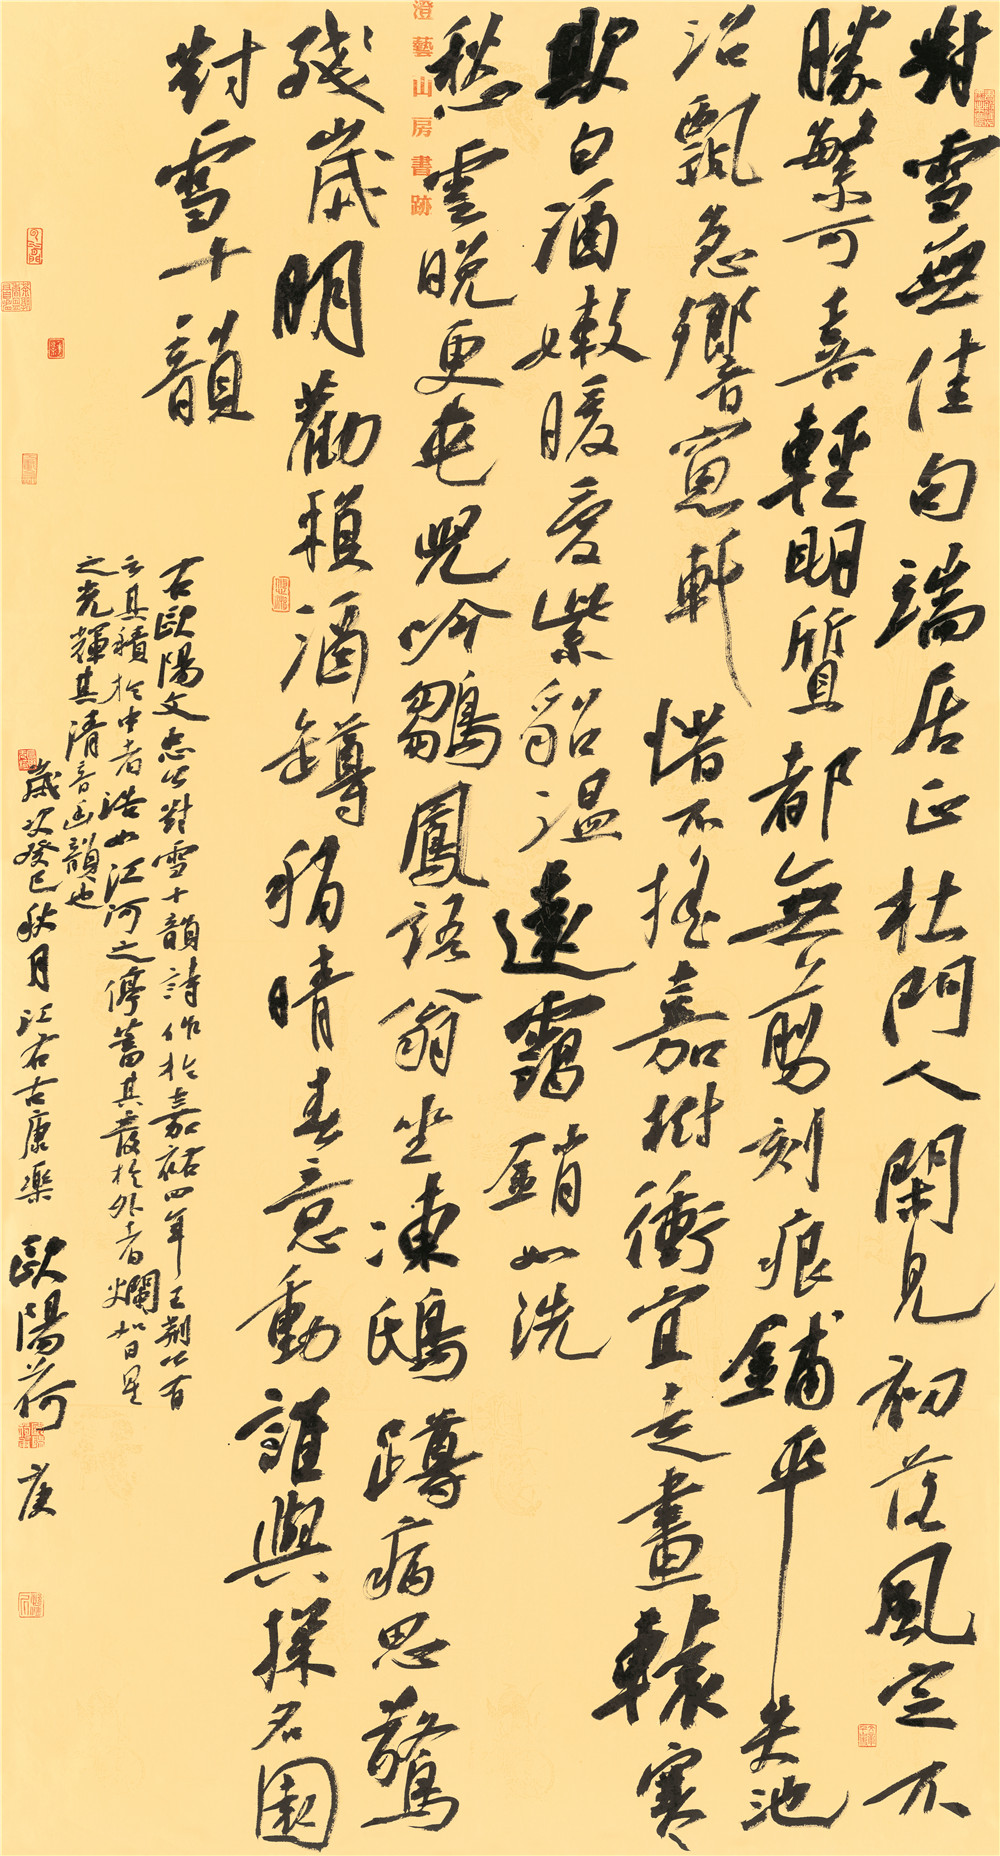 對雪無佳句端居正杜門人閑見初落風定不
勝繁可喜輕明質都無剪刻痕鋪平失池
沼飄急響窻軒惜不搖嘉樹衝宜走畫轅寒
欺白酒嫩暖愛紫貂温遠靄銷如洗
澄藝山房書跡
愁雲晚更屯兒吟鶵鳳語翁坐凍鴟蹲病思驚
殘歲朋歡賴酒罇稍晴春意動誰與探名園
對雪十韻
右歐陽文忠公對雪十韻詩作於嘉祐四年王荆公有
云其積於中者浩如江河之停蓄其發於外者爛如日星
之光輝其清音幽韻也
歲次癸巳秋月江右古康樂歐陽荷庚